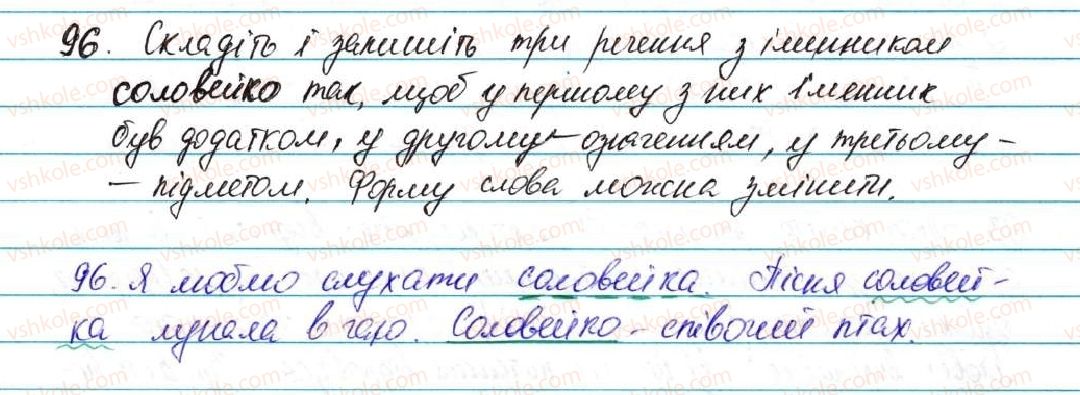 96. Складіть і запишіть три речення з іменником
соловейко так, щоб у першому з них іменник
був додатком, у другому – означенням, у третьому –
– підметом. Форму слова можна змінити.
96. Я люблю слухати соловейка. Пісня соловей-
ка лунала в гаю. Соловейко – співочий птах.